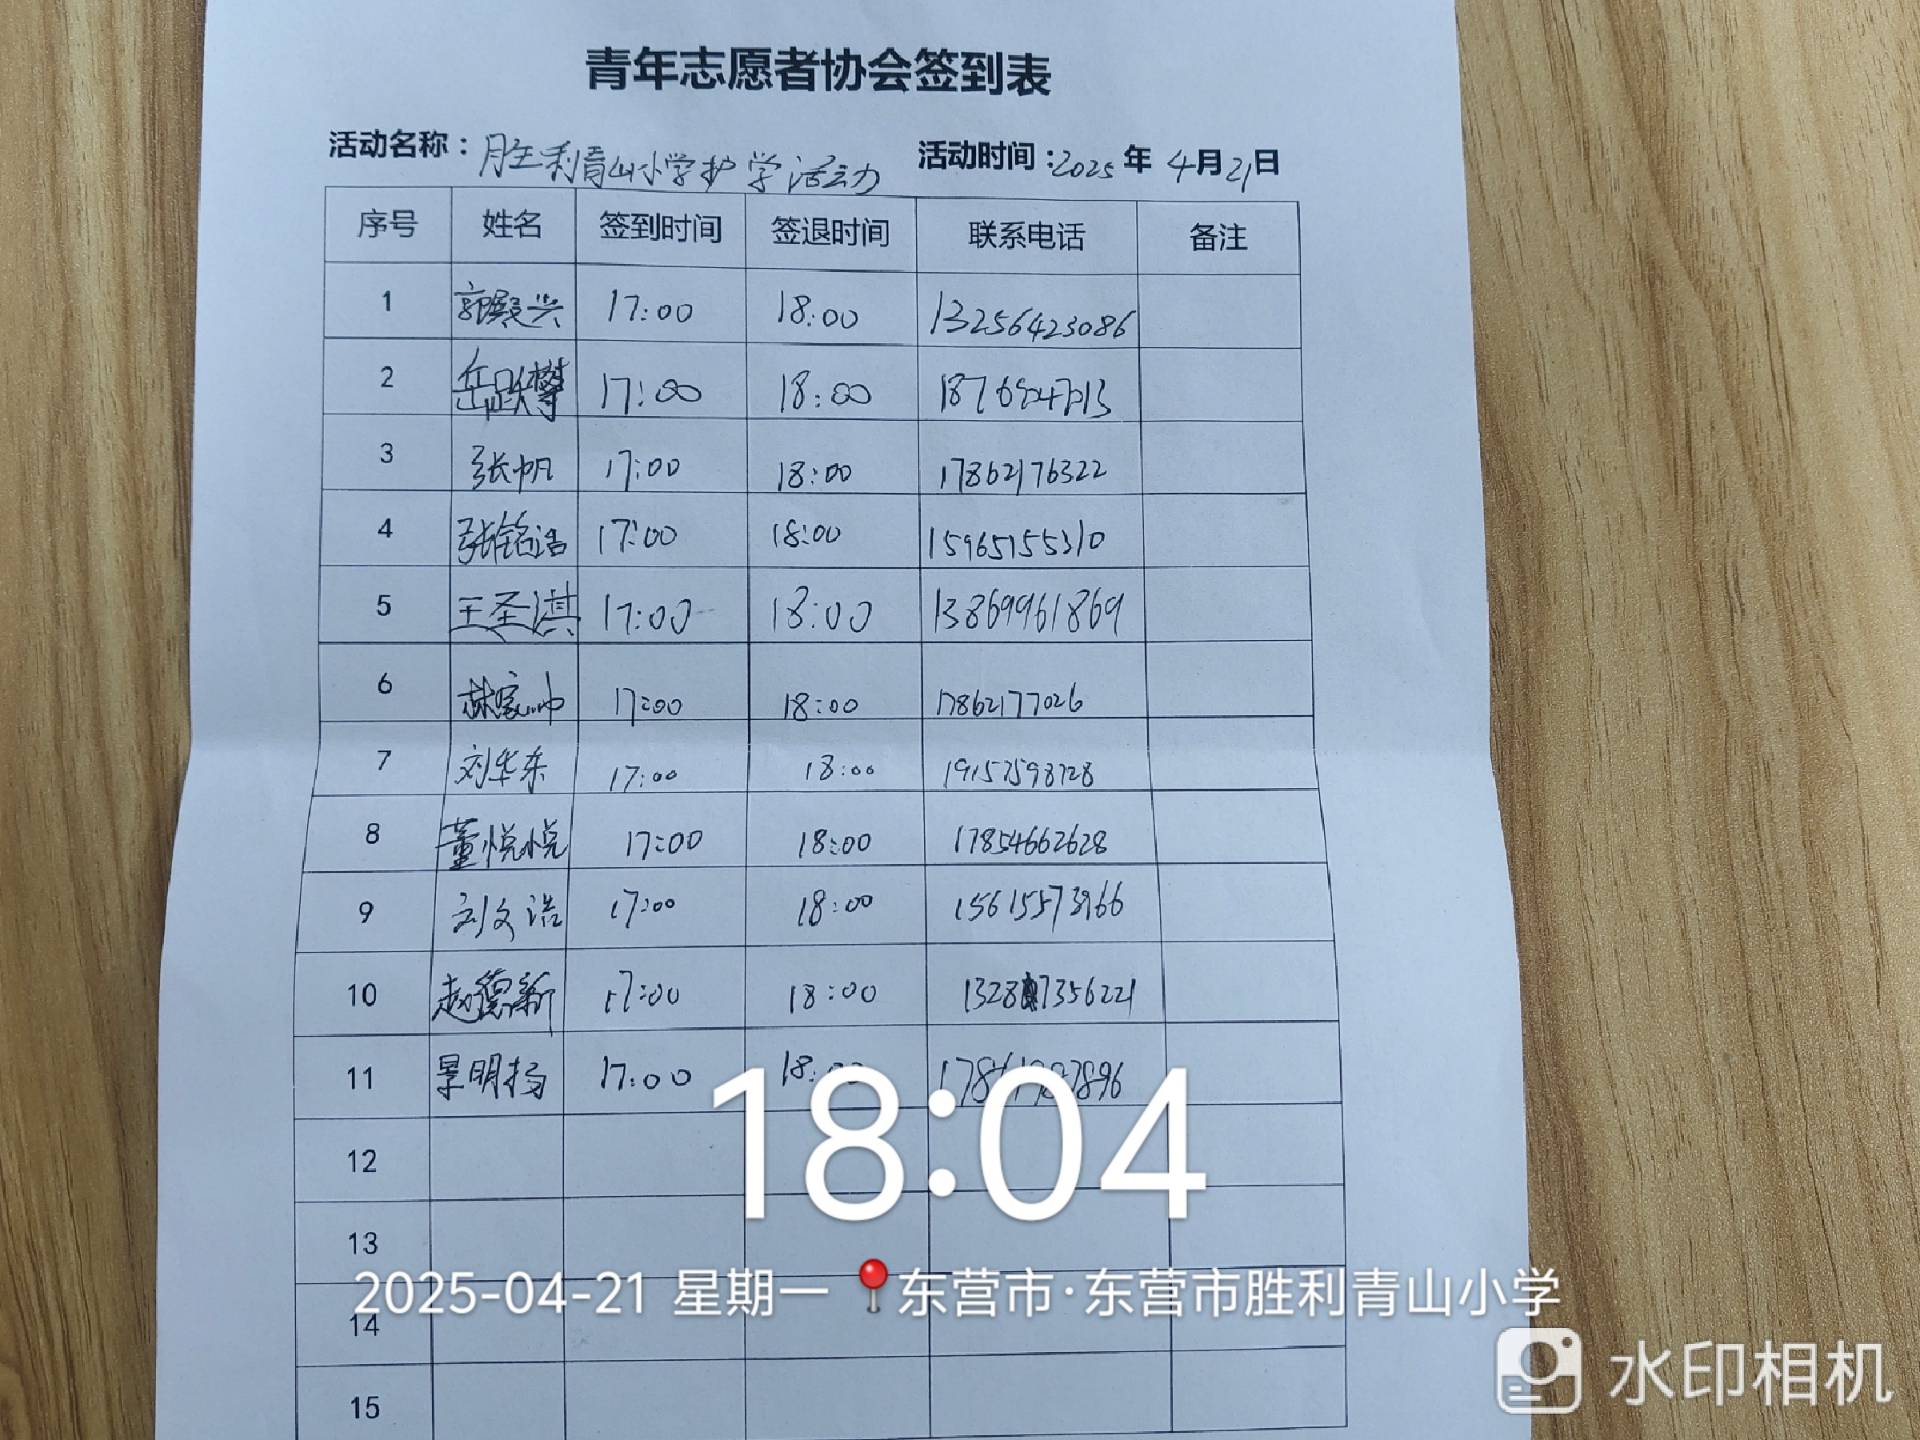 青年志愿者协会签到表
活动名称：胜利青山小学护学活动 活动时间：2025年4月21日
序号 姓名 签到时间 签退时间 联系电话 备注
1 郭晨兴 17:00 18:00 13256423086
2 岳跃 17:00 18:00
3 张帆 17:00 18:00 17862176322
4 张铭浩 17:00 18:00 15965155310
5 王圣淇 17:00 18:00 13869961869
6 林家帅 17:00 18:00 17862177026
7 刘华东 17:00 18:00 19157598728
8 董悦悦 17:00 18:00 17854662628
9 刘文浩 17:00 18:00 15615573966
10 赵德新 17:00 18:00 13287356221
11 景明扬 17:00 18:00
12
13
14
15
18:04
2025-04-21 星期一 东营市·东营市胜利青山小学
水印相机